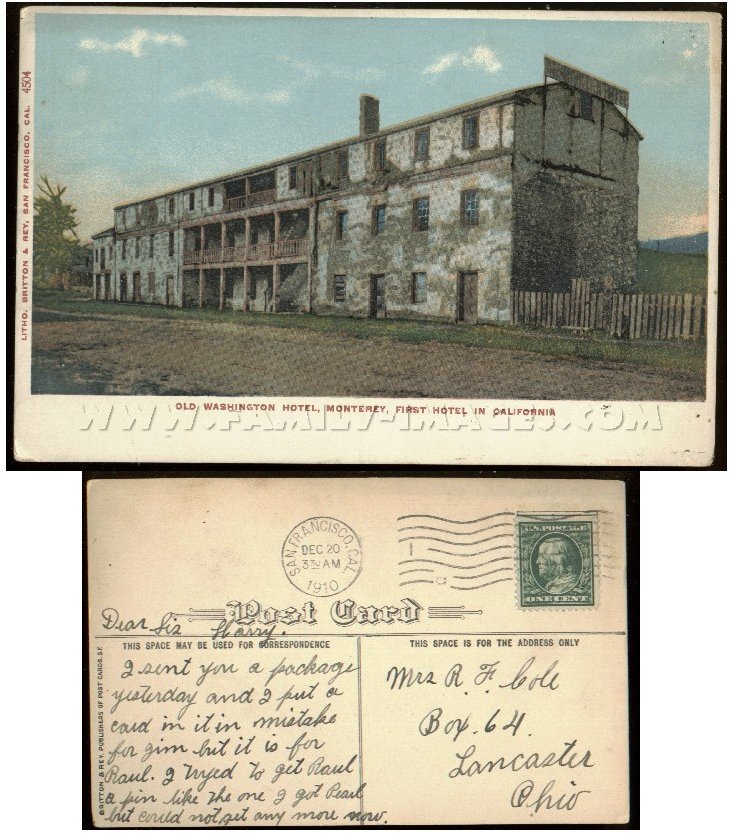 LITHO. BRITTON & REY, SAN FRANCISCO, CAL. 4504
OLD WASHINGTON HOTEL, MONTEREY, FIRST HOTEL IN CALIFORNIA
WWW.FAMILY-IMAGES.COM
SAN FRANCISCO, CAL.
DEC 20
3 30 AM
1910
U.S. POSTAGE
ONE CENT
Post Card
Dear Sis Harry.
THIS SPACE MAY BE USED FOR CORRESPONDENCE
THIS SPACE IS FOR THE ADDRESS ONLY
BRITTON & REY, PUBLISHERS OF POST CARDS, S.F.
I sent you a package
yesterday and I put a
card in it in mistake
for gim but it is for
Raul. I tryed to get Raul
a pin like the one I got Pearl
but could not get any more now.
Mrs R. F. Cole
Box. 64.
Lancaster
Ohio